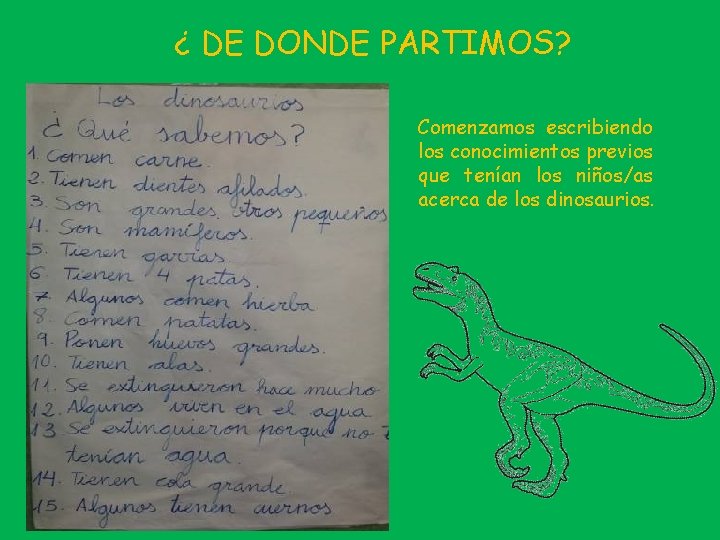 ¿ DE DONDE PARTIMOS?
Los dinosaurios
¿ Qué sabemos?
1. Comen carne.
2. Tienen dientes afilados.
3. Son grandes, otros pequeños
4. Son mamíferos.
5. Tienen garras
6. Tienen 4 patas.
7. Algunos comen hierba
8. Comen patatas.
9. Ponen huevos grandes.
10. Tienen alas.
11. Se extinguieron hace mucho
12. Algunos viven en el agua
13. Se extinguieron porque no
tenían agua.
14. Tienen cola grande.
15. Algunos tienen cuernos
Comenzamos escribiendo
los conocimientos previos
que tenían los niños/as
acerca de los dinosaurios.